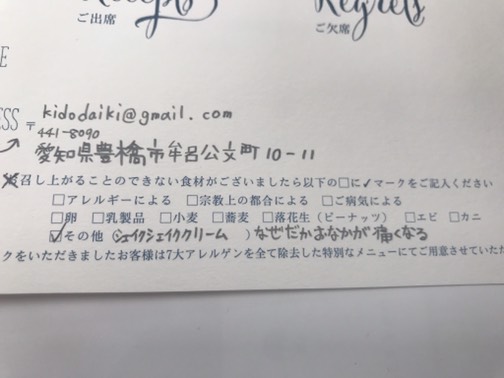 Accepts Regrets
ご出席 ご欠席
ESS kidodaiki@gmail.com
〒441-8090
愛知県豊橋市牟呂公文町10-11
召し上がることのできない食材がございましたら以下の□に✓マークをご記入ください
□アレルギーによる □宗教上の都合による □ご病気による
□卵 □乳製品 □小麦 □蕎麦 □落花生(ピーナッツ) □エビ □カニ
☑その他(シェイクシェイククリーム )なぜだかおなかが痛くなる
クをいただきましたお客様は7大アレルゲンを全て除去した特別なメニューにてご用意させていた